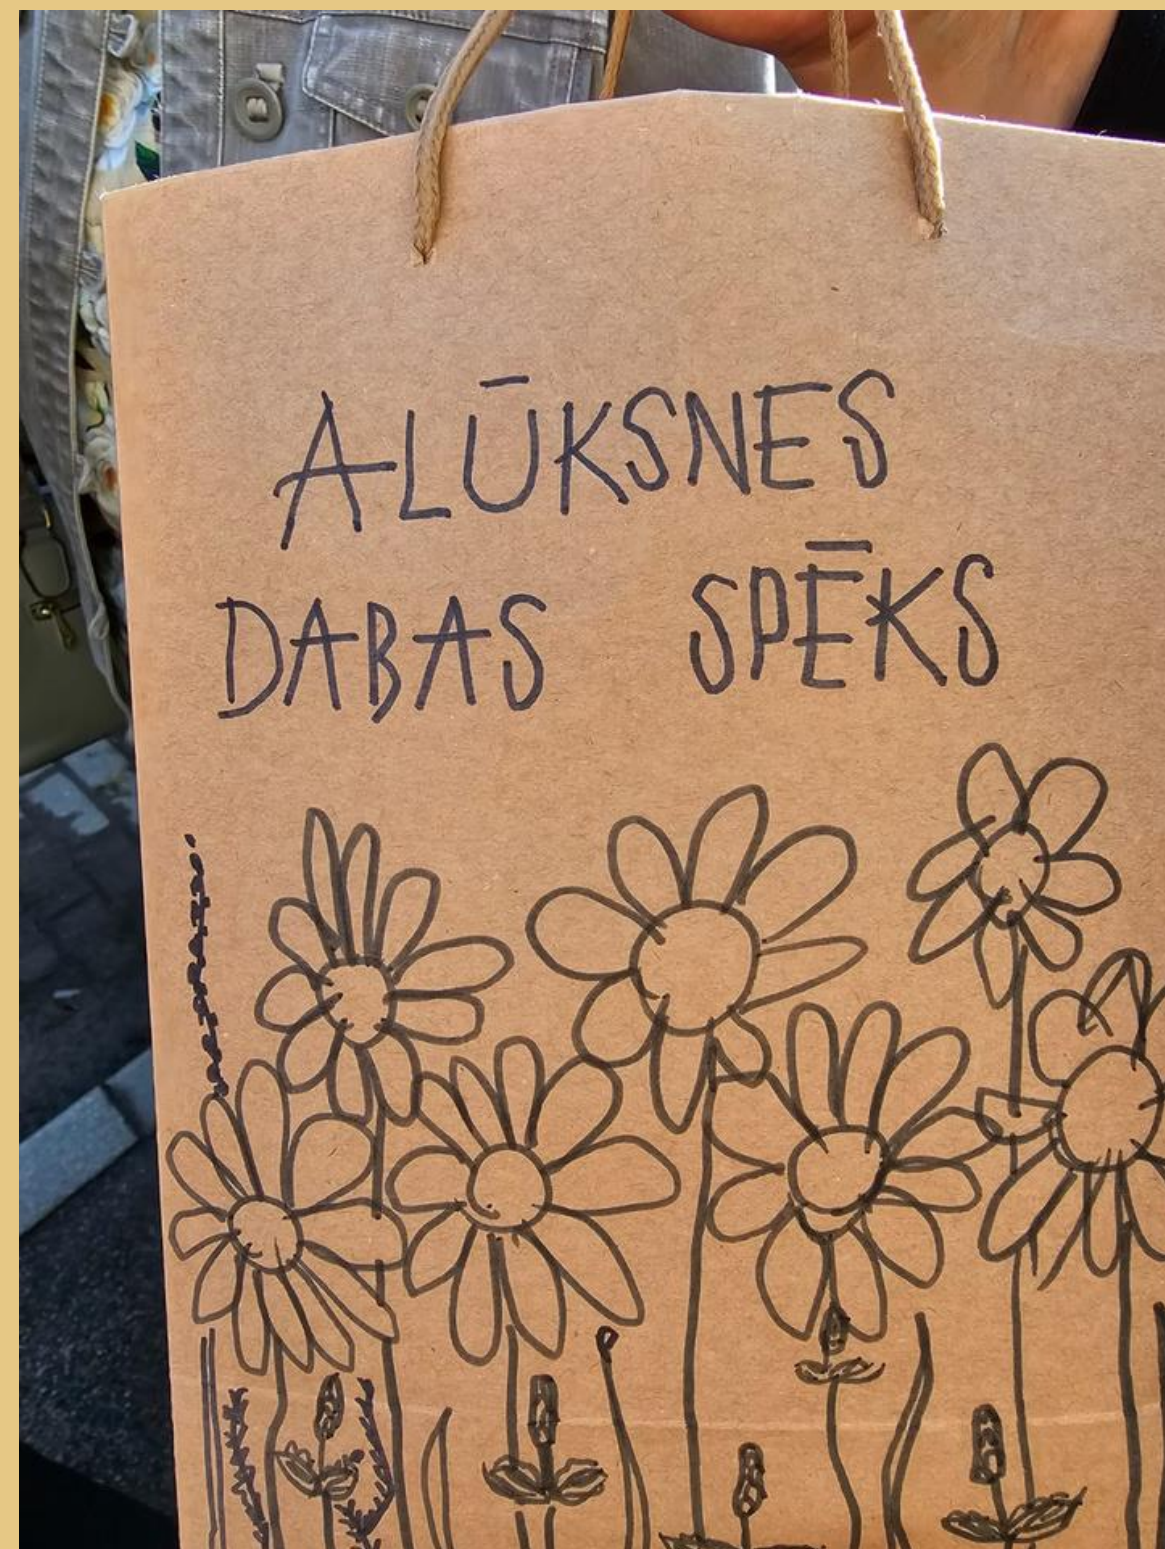 ALŪKSNES
DABAS SPĒKS